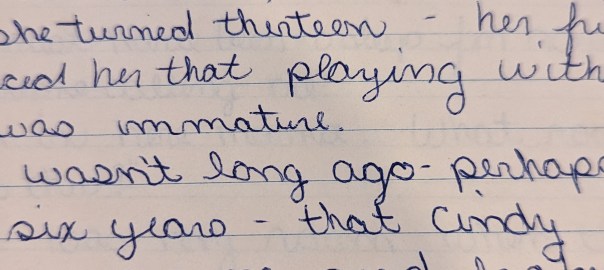 she turned thirteen - her fu
ced her that playing with
was immature.
wasn't long ago - perhaps
six years - that Cindy